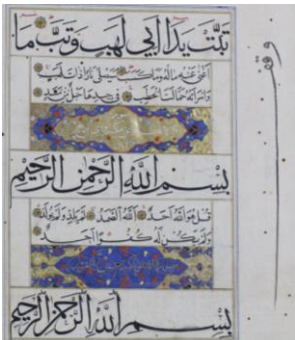 تَبَّتْ يَدَا أَبِي لَهَبٍ وَتَبَّ مَا
أَغْنَى عَنْهُ مَالُهُ وَمَا كَسَبَ سَيَصْلَى نَارًا ذَاتَ لَهَبٍ
وَامْرَأَتُهُ حَمَّالَةَ الْحَطَبِ فِي جِيدِهَا حَبْلٌ مِنْ مَسَدٍ
بِسْمِ اللَّهِ الرَّحْمَنِ الرَّحِيمِ
قُلْ هُوَ اللَّهُ أَحَدٌ اللَّهُ الصَّمَدُ لَمْ يَلِدْ وَلَمْ يُولَدْ
وَلَمْ يَكُنْ لَهُ كُفُوًا أَحَدٌ
بِسْمِ اللَّهِ الرَّحْمَنِ الرَّحِيمِ
وقف